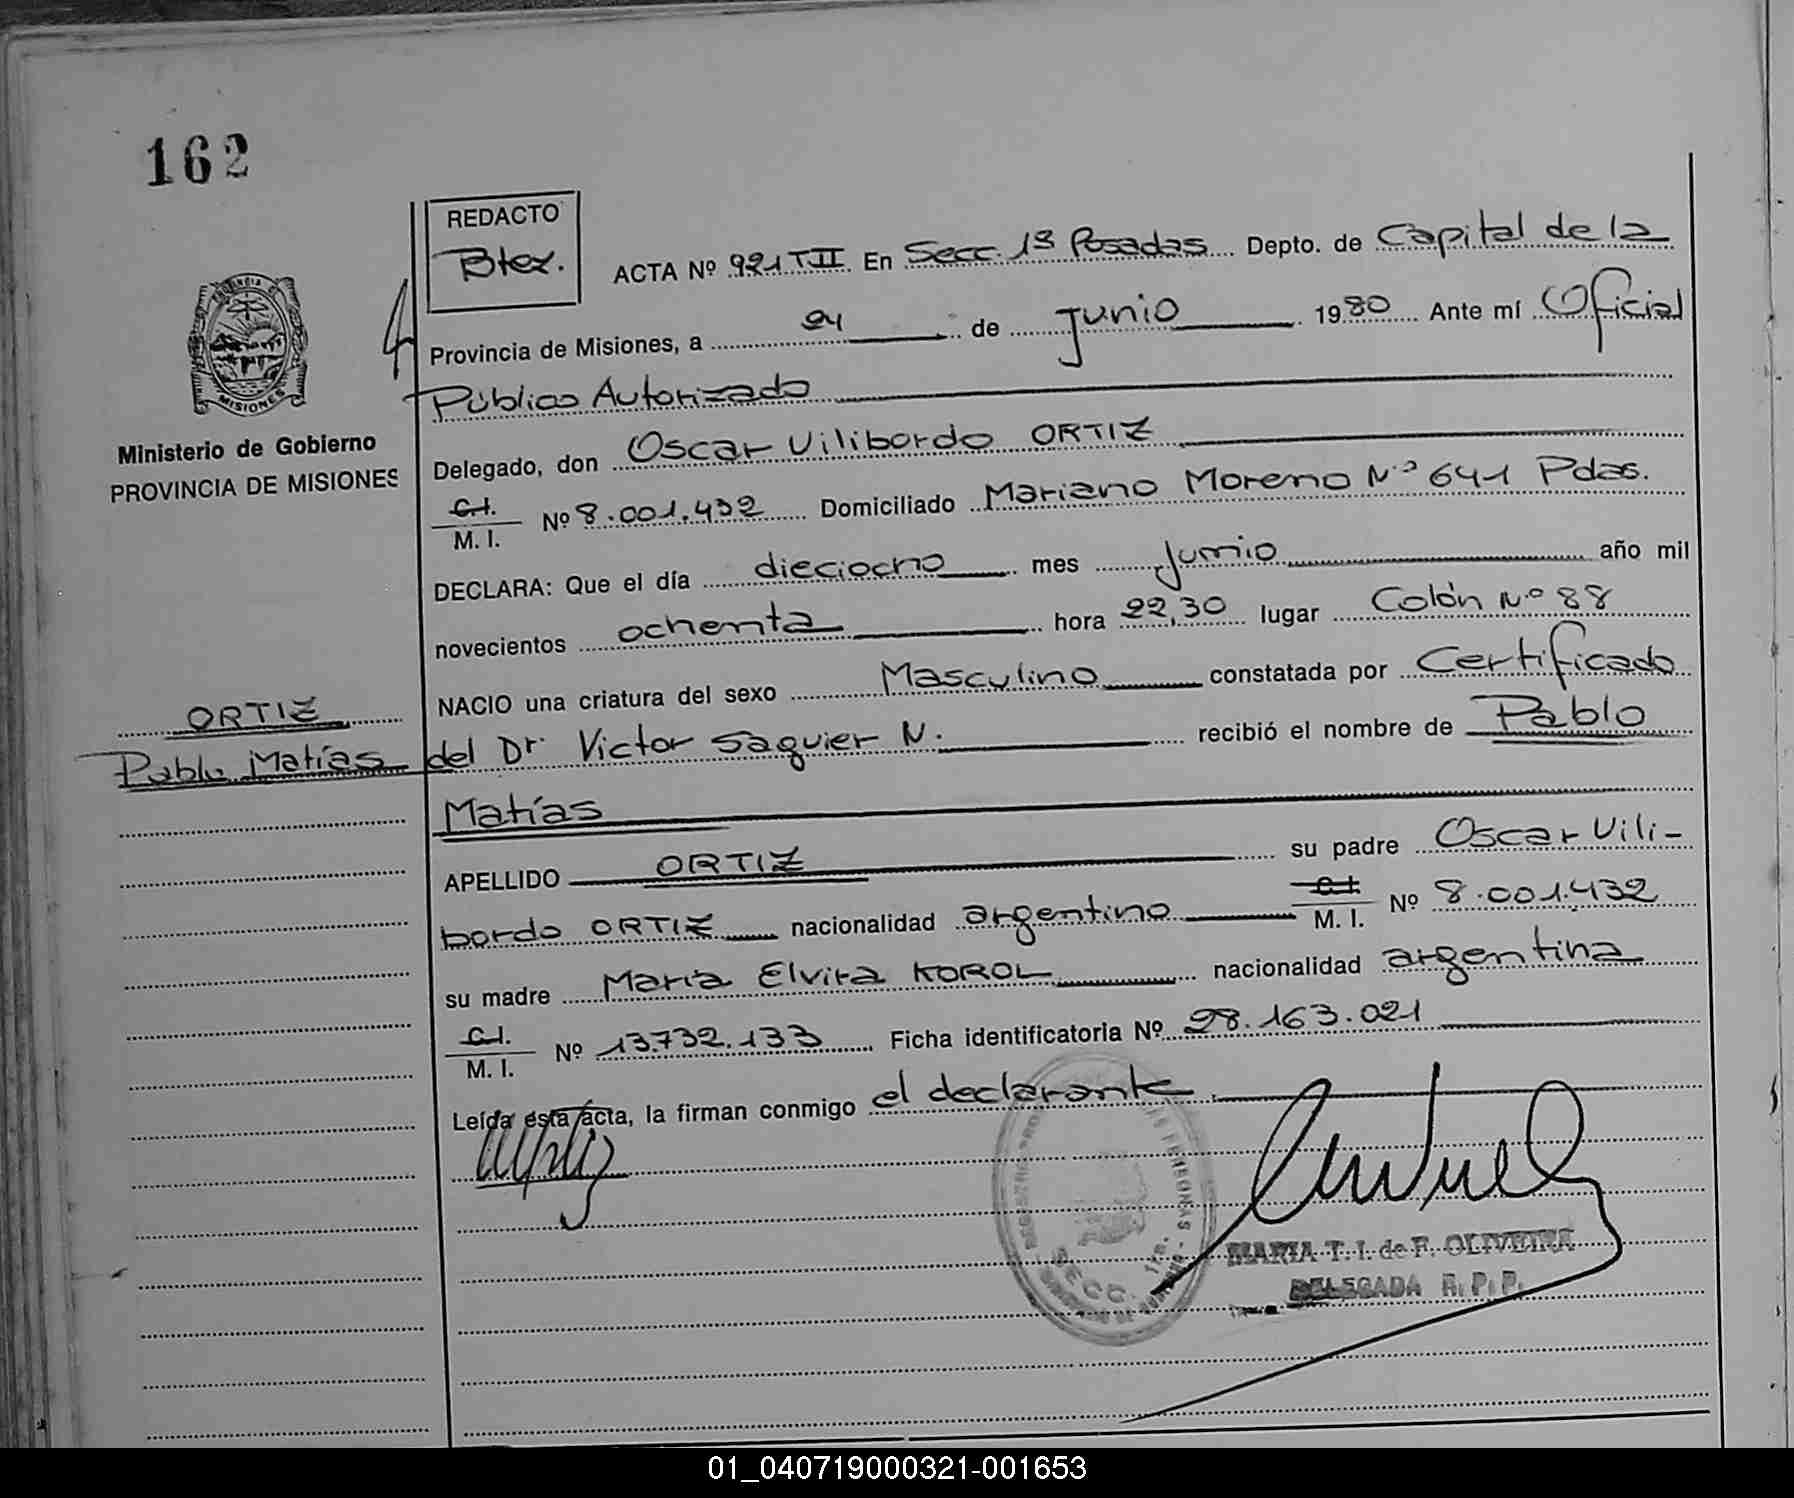 162
REDACTO
Btex.
ACTA Nº 921 TII En Secc. 1ª Posadas Depto. de Capital de la
Provincia de Misiones, a 24 de junio 1980 Ante mí Oficial
Público Autorizado
Delegado, don Oscar Vilibordo ORTIZ
C.I. M. I. Nº 8.001.432 Domiciliado Mariano Moreno Nº 641 Pdas.
DECLARA: Que el día dieciocho mes junio año mil
novecientos ochenta hora 22,30 lugar Colón Nº 88
NACIO una criatura del sexo Masculino constatada por Certificado
del Dr. Victor Saguier N. recibió el nombre de Pablo
Matías
APELLIDO ORTIZ su padre Oscar Vili-
bordo ORTIZ nacionalidad argentino C.I. M. I. Nº 8.001.432
su madre María Elvira KOROL nacionalidad argentina
C.I. M. I. Nº 13.732.133 Ficha identificatoria Nº 28.163.021
Leída esta acta, la firman conmigo el declarante
MISIONES
Ministerio de Gobierno
PROVINCIA DE MISIONES
ORTIZ
Pablo Matías
SECC. 1ra.
MARIA T. I. de F. OLIVEIRA
DELEGADA R. P. P.
01_040719000321-001653